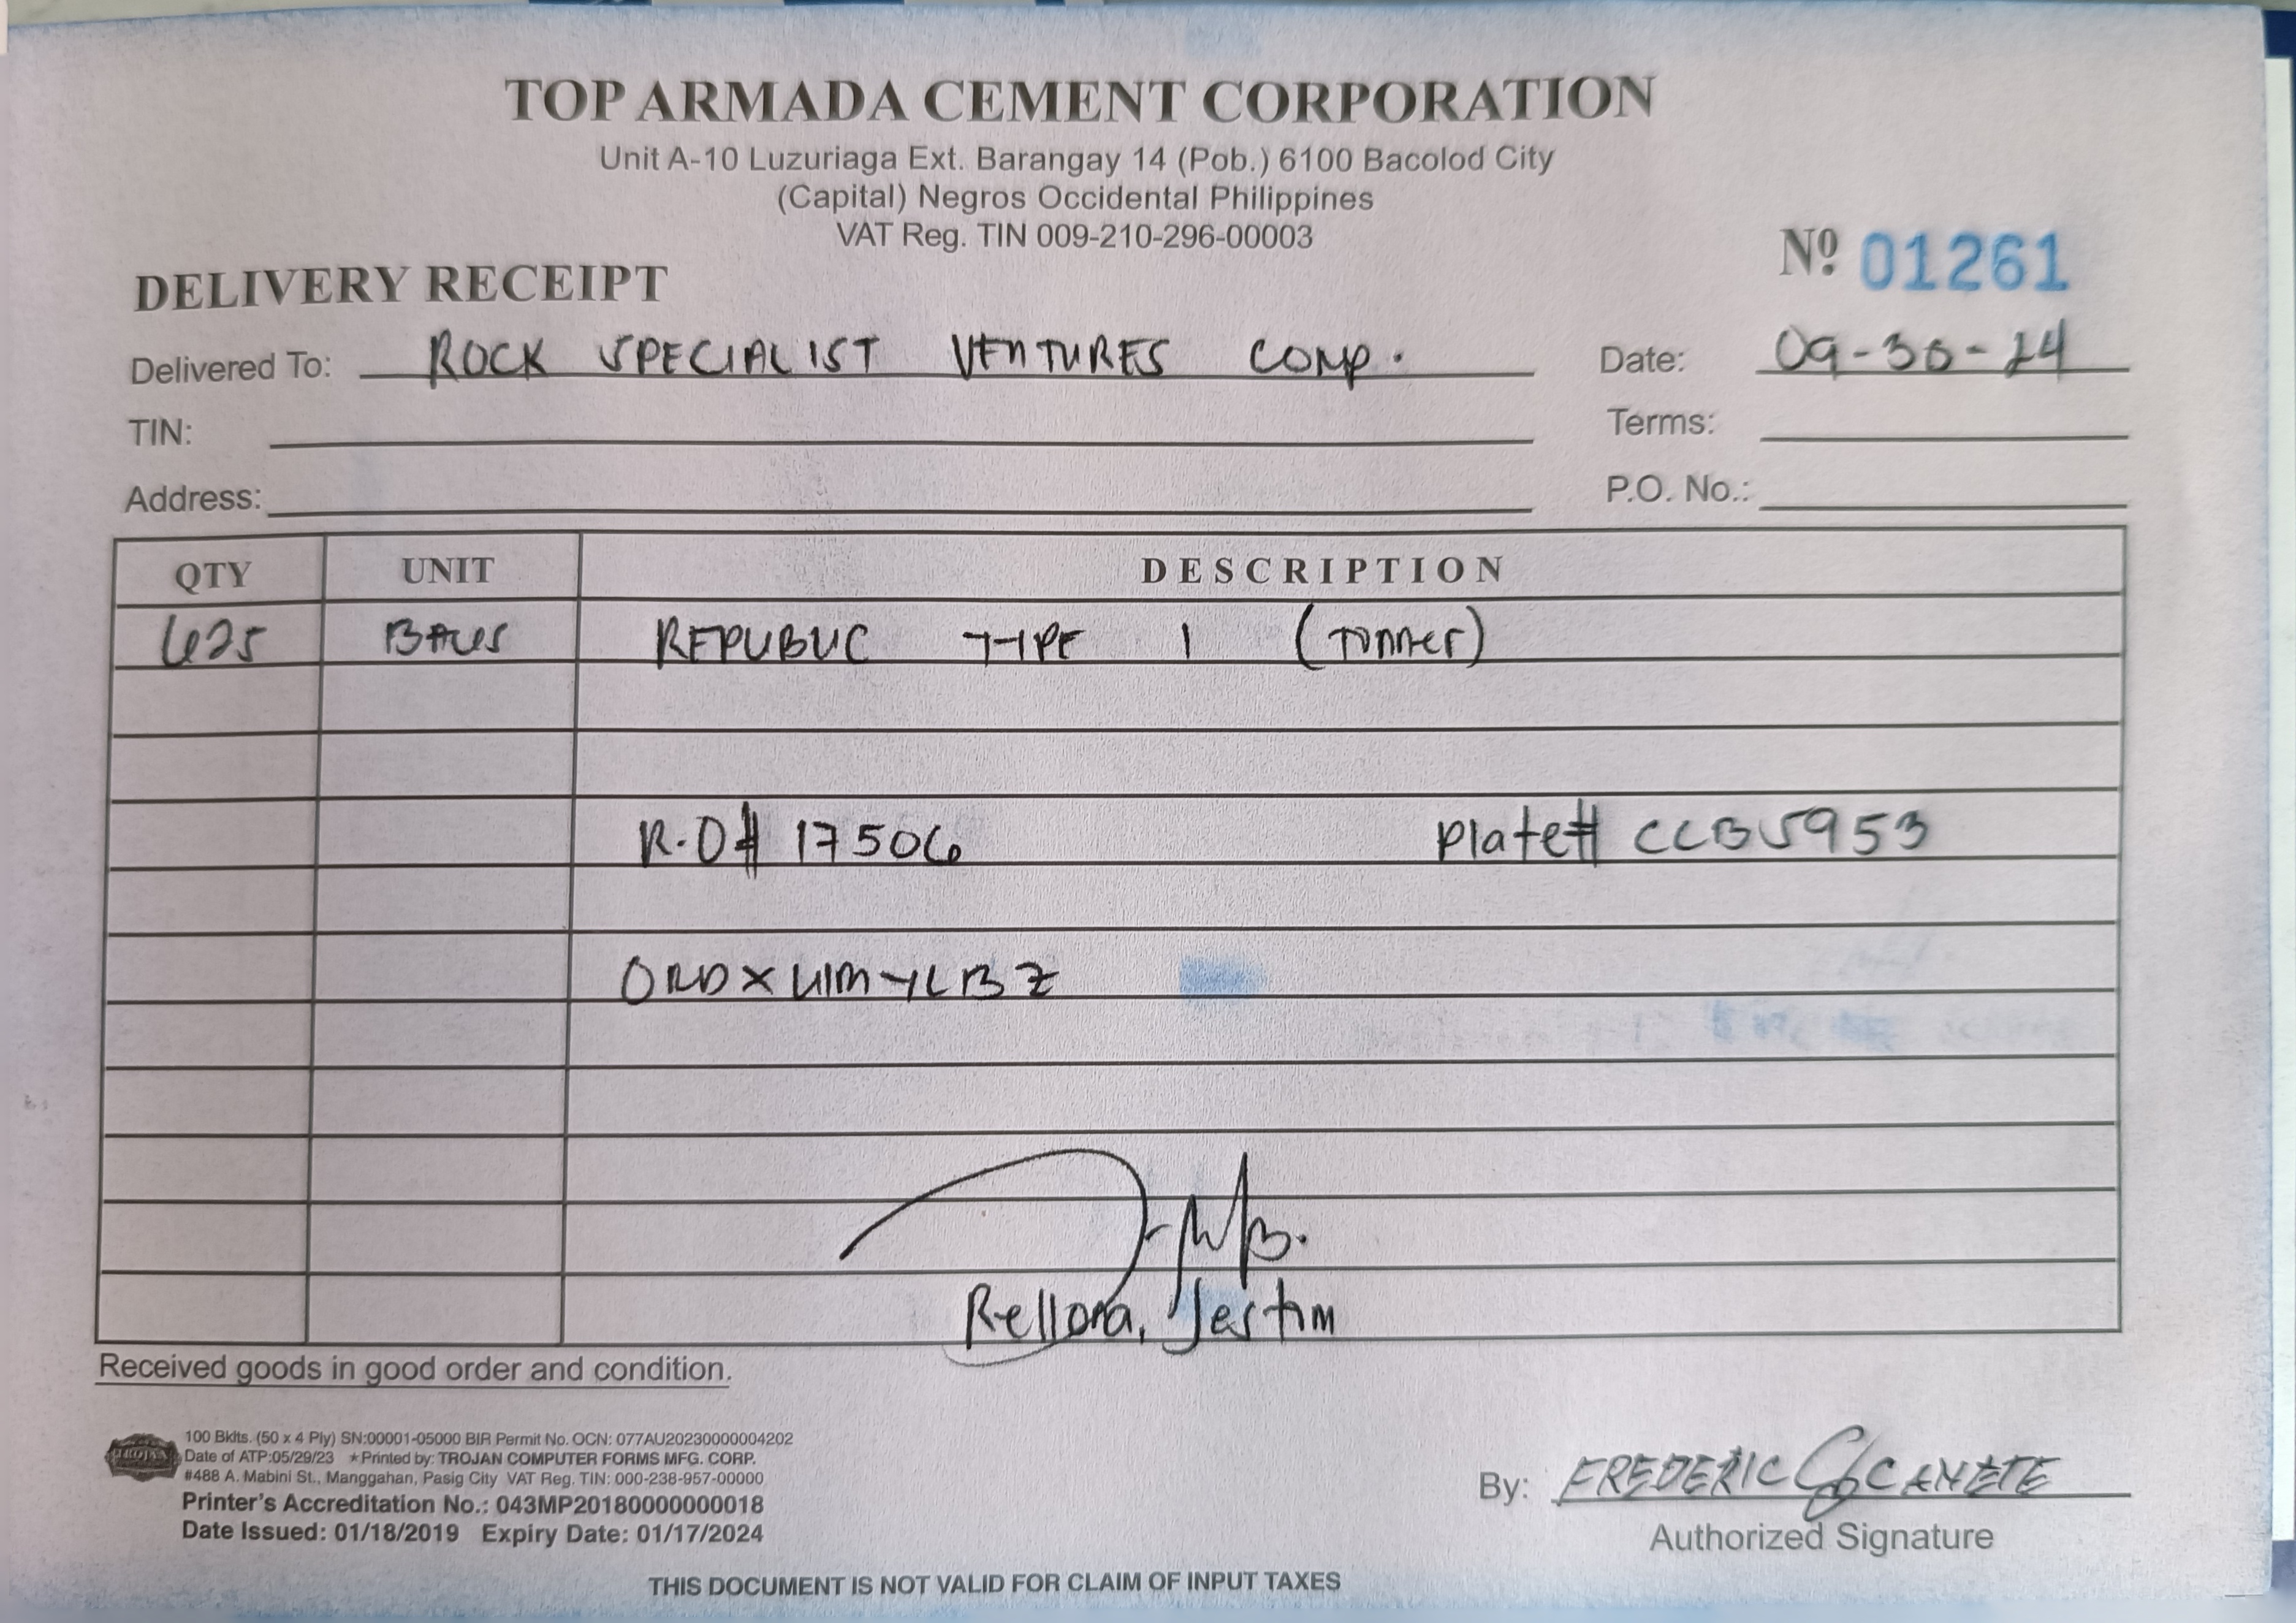 TOP ARMADA CEMENT CORPORATION
Unit A-10 Luzuriaga Ext. Barangay 14 (Pob.) 6100 Bacolod City
(Capital) Negros Occidental Philippines
VAT Reg. TIN 009-210-296-00003
Nº 01261
DELIVERY RECEIPT
Delivered To: ROCK SPECIALIST VENTURES COMP. Date: 09-30-24
TIN: Terms:
Address: P.O. No.:
QTY UNIT DESCRIPTION
625 BAGS REPUBLIC TYPE 1 (TONNER)
R.O# 17506 Plate# CCB5953
Rellora, Jestim
Received goods in good order and condition.
100 Bklts. (50 x 4 Ply) SN:00001-05000 BIR Permit No. OCN: 077AU20230000004202
Date of ATP:05/29/23 ★Printed by: TROJAN COMPUTER FORMS MFG. CORP.
#488 A. Mabini St., Manggahan, Pasig City VAT Reg. TIN: 000-238-957-00000
Printer's Accreditation No.: 043MP20180000000018
Date Issued: 01/18/2019 Expiry Date: 01/17/2024
By: FREDERIC CANETE
Authorized Signature
THIS DOCUMENT IS NOT VALID FOR CLAIM OF INPUT TAXES